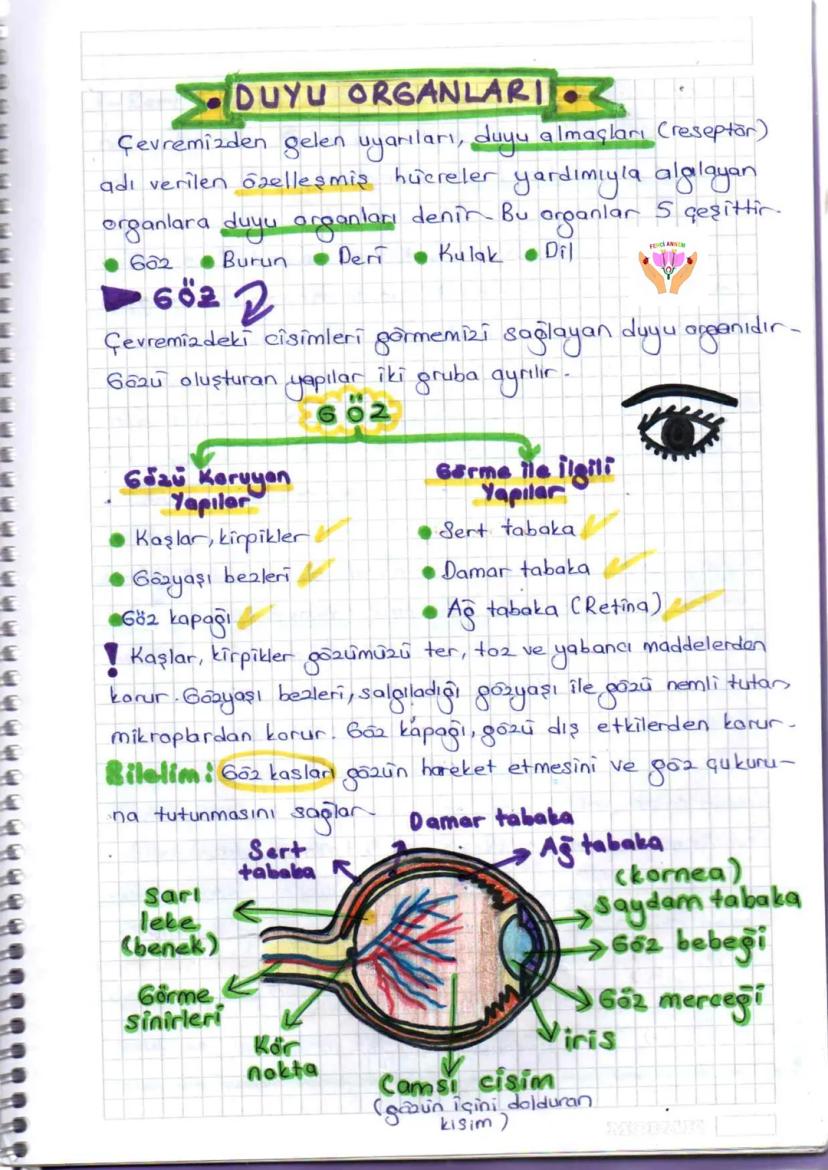 DUYU ORGANLARI
Çevremizden gelen uyarıları, duyu almaçları (reseptör)
adı verilen özelleşmiş hücreler yardımıyla algılayan
organlara duyu organları denir. Bu organlar 5 çeşittir.
Göz Burun Deri Kulak Dil
FENCİ ANNEM
GÖZ
Çevremizdeki cisimleri görmemizi sağlayan duyu organıdır.
Gözü oluşturan yapılar iki gruba ayrılır.
GÖZ
Gözü Koruyan
Yapılar
Kaşlar, kirpikler
Gözyaşı bezleri
Göz kapağı
Görme ile ilgili
Yapılar
Sert tabaka
Damar tabaka
Ağ tabaka (Retina)
! Kaşlar, kirpikler gözümüzü ter, toz ve yabancı maddelerden
korur. Gözyaşı bezleri, salgıladığı gözyaşı ile gözü nemli tutar,
mikroplardan korur. Göz kapağı, gözü dış etkilerden korur.
Bilelim: Göz kasları gözün hareket etmesini ve göz çukuru-
na tutunmasını sağlar.
Damar tabaka
Sert
tabaka
Ağ tabaka
(kornea)
Saydam tabaka
Sarı
leke
(benek)
Göz bebeği
Görme
sinirleri
Göz merceği
iris
Kör
nokta
Camsı cisim
(gözün içini dolduran
kısım)